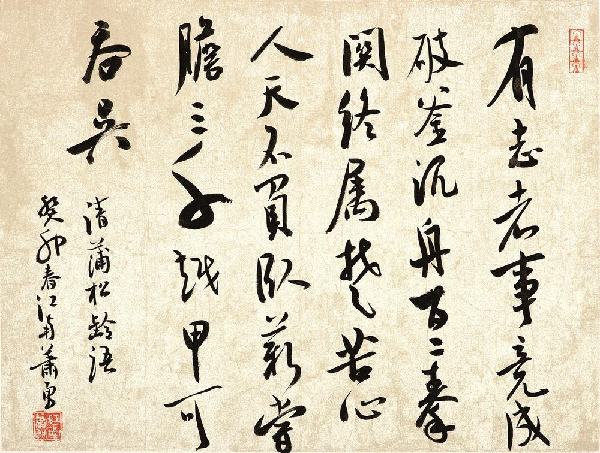 有志者事竟成
破釜沉舟百二秦
関终属楚苦心
人天不負卧薪嘗
膽三千越甲可
吞吴
清蒲松齡語
癸卯春江南蕭勇